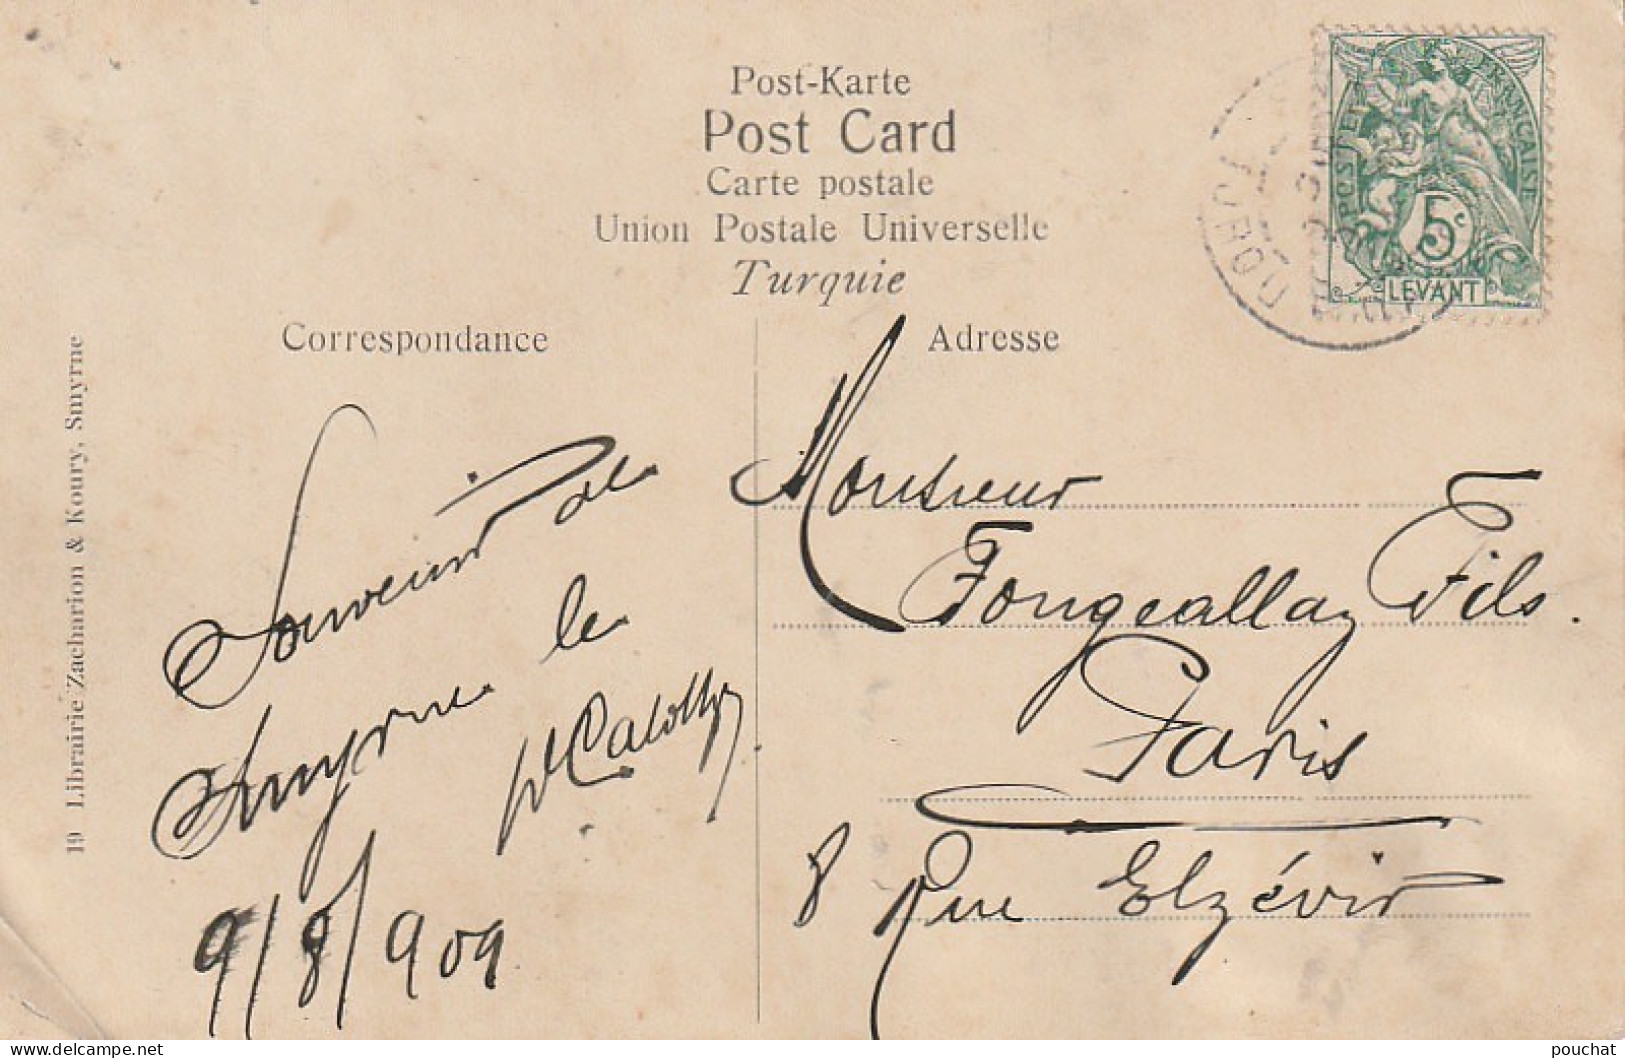 Post-Karte
Post Card
Carte postale
Union Postale Universelle
Turquie
Correspondance
Adresse
POSTES
FRANÇAISE
5c
LEVANT
TURQ
19 Librairie Zacharion & Koury, Smyrne
Souvenir de
Smyrne le
9/8/909
Monsieur
Fongeallaz Fils.
Paris
8 Rue Elzévir
pouchat